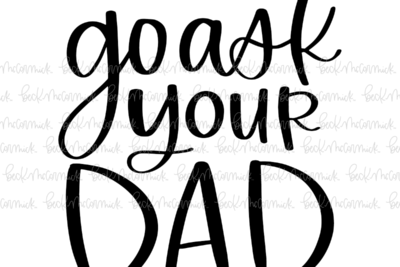 go ask
your
DAD